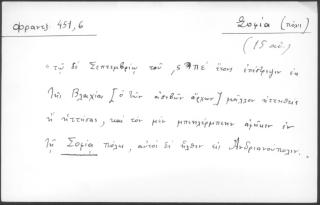 Φραντζ. 451,6 Σοφία (πόλι)
(15 αἰ.)
"τῷ δὲ Σεπτεμβρίῳ τοῦ ,ςϡπέ ἔτους ἐπέστρεψεν ἐκ
τῆς Βλαχίας [ὁ τῶν ἀσεβῶν ἄρχων] μᾶλλον ἡττηθεὶς
ἢ ἡττήσας, καὶ τὸν μὲν μπεηλέρμπεην ἀφῆκεν ἐν
τῇ Σοφίᾳ πόλει, αὐτὸς δὲ ἦλθεν εἰς Ἀνδριανούπολιν.